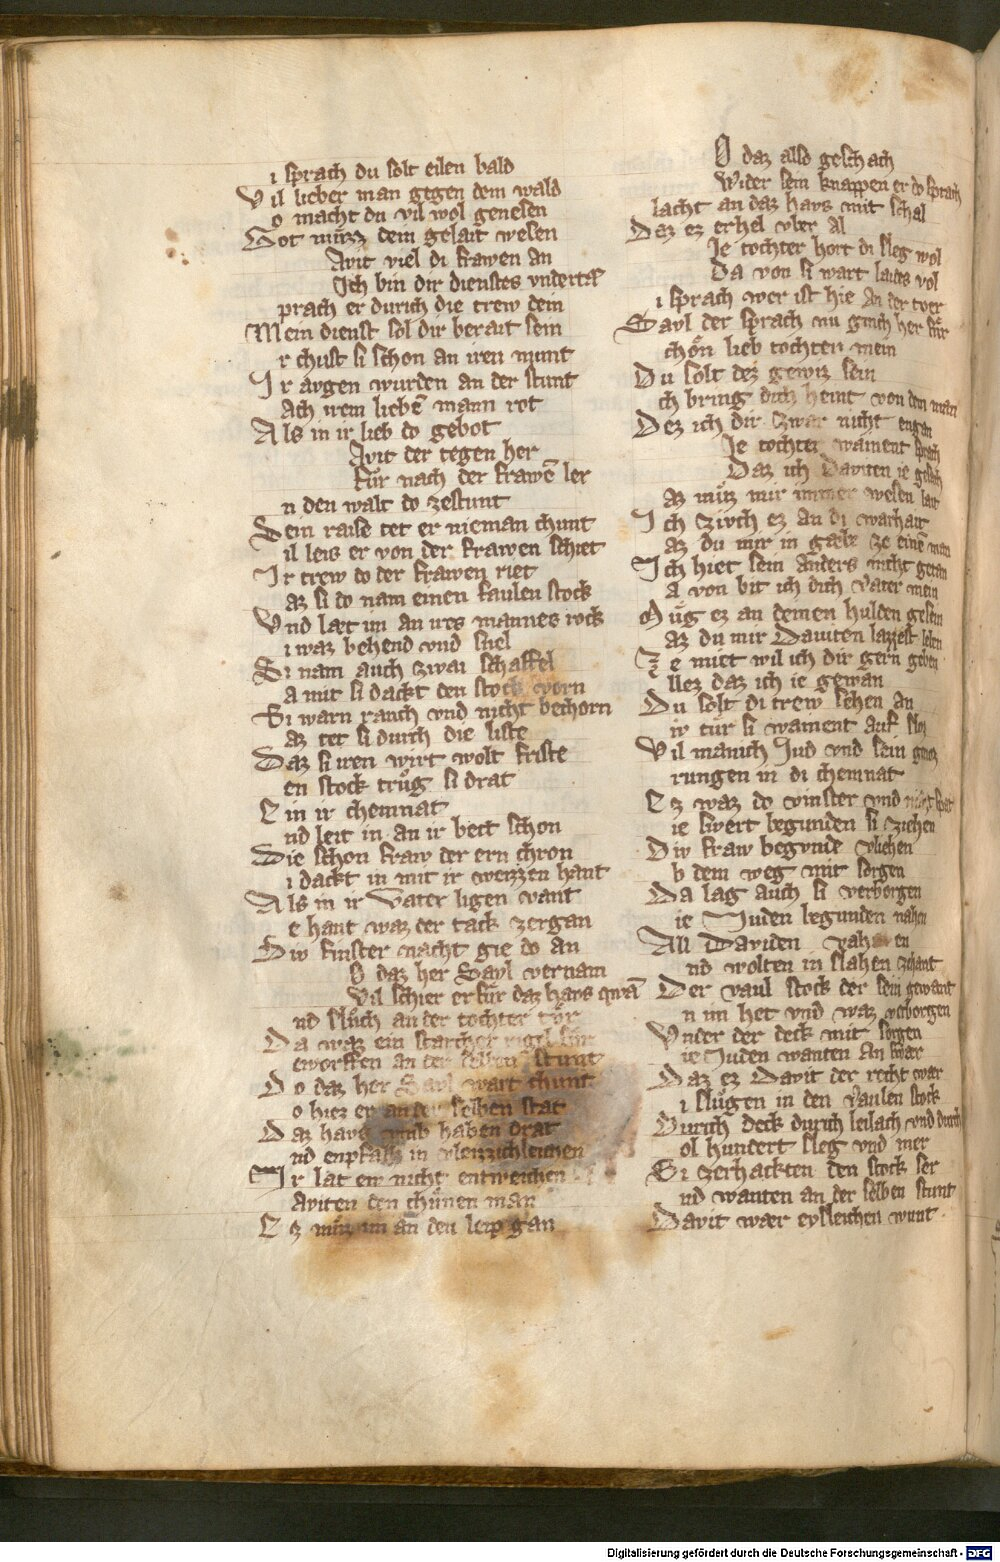 i sprach du solt eilen bald
Vil lieber man gegen dem wald
o macht du vil wol genesen
Got muͤzz dem gelait wesen
Avit viel di frawen an
Ich bin dir dienstes vndertā
prach er durich die trew dein
Mein dienst sol dir berait sein
r chust si schon an iren munt
Ir augen wurden an der stunt
Ach irem liebē mann rot
Als in ir lieb do gebot
Avit der tegen her
fur nach der frawē ler
n den walt do zestunt
Dein raise tet er nieman chunt
il leis er von der frawen schiet
Ir trew do der frawen riet
az si do nam einen faulen stock
Vnd læt im an irs mannes rock
i waz behend vnd snel
Si nam auch zwai schaffel
a mit si dackt den stock vorn
Si warn rauch vnd nicht beschorn
az tet si durch die liste
Daz si iren wirt wolt friste
en stock truͤg si drat
E in ir chemnat
nd leit in an ir bett schon
Die schon fraw der ern chron
i dackt in mit ir weizzen hant
Als in ir vater ligen vant
e hant waz der tack zergan
Div finster nacht gie do an
O daz her Sayl vernam
Vil schier er fuͤr daz haus quā
nd sluͤch an der tochter tuͤr
Da waz ein starcher rigel fuͤr
eworffen an der selben stunt
Do daz her Sayl wart chunt
o hiez er an der selben stat
Daz haus vmb haben drat
nd enpfalh in vleizzichleichen
Ir lat eur nicht entweichen
Aviten den choͤnen man
Ez muͤz im an den leip gan
O daz also geschach
Wider sein knappen er do sprach
lacht an daz haus mit schal
Daz ez erhel vber al
Ie tochter hort di sleg wol
Da von si wart laides vol
i sprach wer ist hie an der tver
Sayl der sprach nu ginch her fuͤr
choͤn lieb tochter mein
Du solt dez gewiz sein
ch bring dich heint von dem man
Dez ich dir zwar nicht engan
Ie tochter wainent sprach
Daz ich Daviten ie gesach
az muͤz mir immer wesen lait
Ich zivch ez an di warhait
az du mir in gæbt ze einē man
Ich hiet sein anders nicht getan
a von bit ich dich vater mein
Muͤg ez an deinen hulden gesein
az du mir Daviten lazzest leben
Ze miet wil ich dir gern geben
llez daz ich ie gewan
Du solt di trew sehen an
ir tuͤr si wainent auf sloz
Vil manich Iud vnd sein genoz
rungen in di chemnat
Ez waz do vinster vnd nicht spat
ie swert begunden si zichen
Div fraw begvnde vliehen
b dem weg mit sorgen
Da lag auch si verborgen
ie Iuden begunden nahen
All Daviden vahen
nd wolten in slahen zehant
Der vaul stock der sein gewant
n im het vnd waz verborgen
Vnder der deck mit sorgen
ie Iuden wanten an swær
Daz ez Davit der recht wær
i sluͤgen in den vaulen stock
Durich deck durch leilach vnd durch
ol hundert sleg vnd mer
Si zerhackten den stock ser
nd wanten an der selben stunt
Davit wær eysleichen wunt
Digitalisierung gefördert durch die Deutsche Forschungsgemeinschaft - DFG